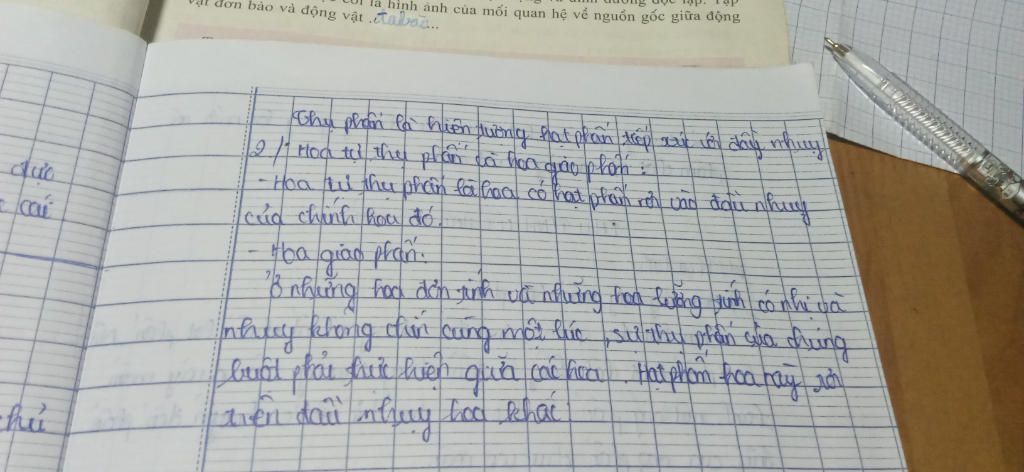 vật đơn bào và động vật .đa bào...
cõi là hình ảnh của mối quan hệ về nguồn gốc giữa động
Thụ phấn là hiện tượng hạt phấn tiếp xúc với đầu nhụy
2) Hoa tự thụ phấn và hoa giao phấn:
- Hoa tự thụ phấn là hoa có hạt phấn rơi vào đầu nhụy
của chính hoa đó.
- Hoa giao phấn:
Ở những hoa đơn tính và những hoa lưỡng tính có nhị và
nhụy không chín cùng một lúc, sự thụ phấn của chúng
buột phải thực hiện qua các hoa. Hạt phấn hoa này rơi
trên đầu nhụy hoa khác
được
cái
chủ